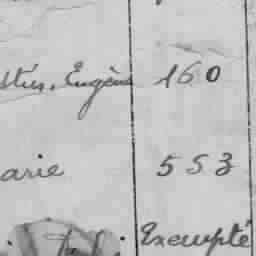 Eugène 160
arie 553
Exempté